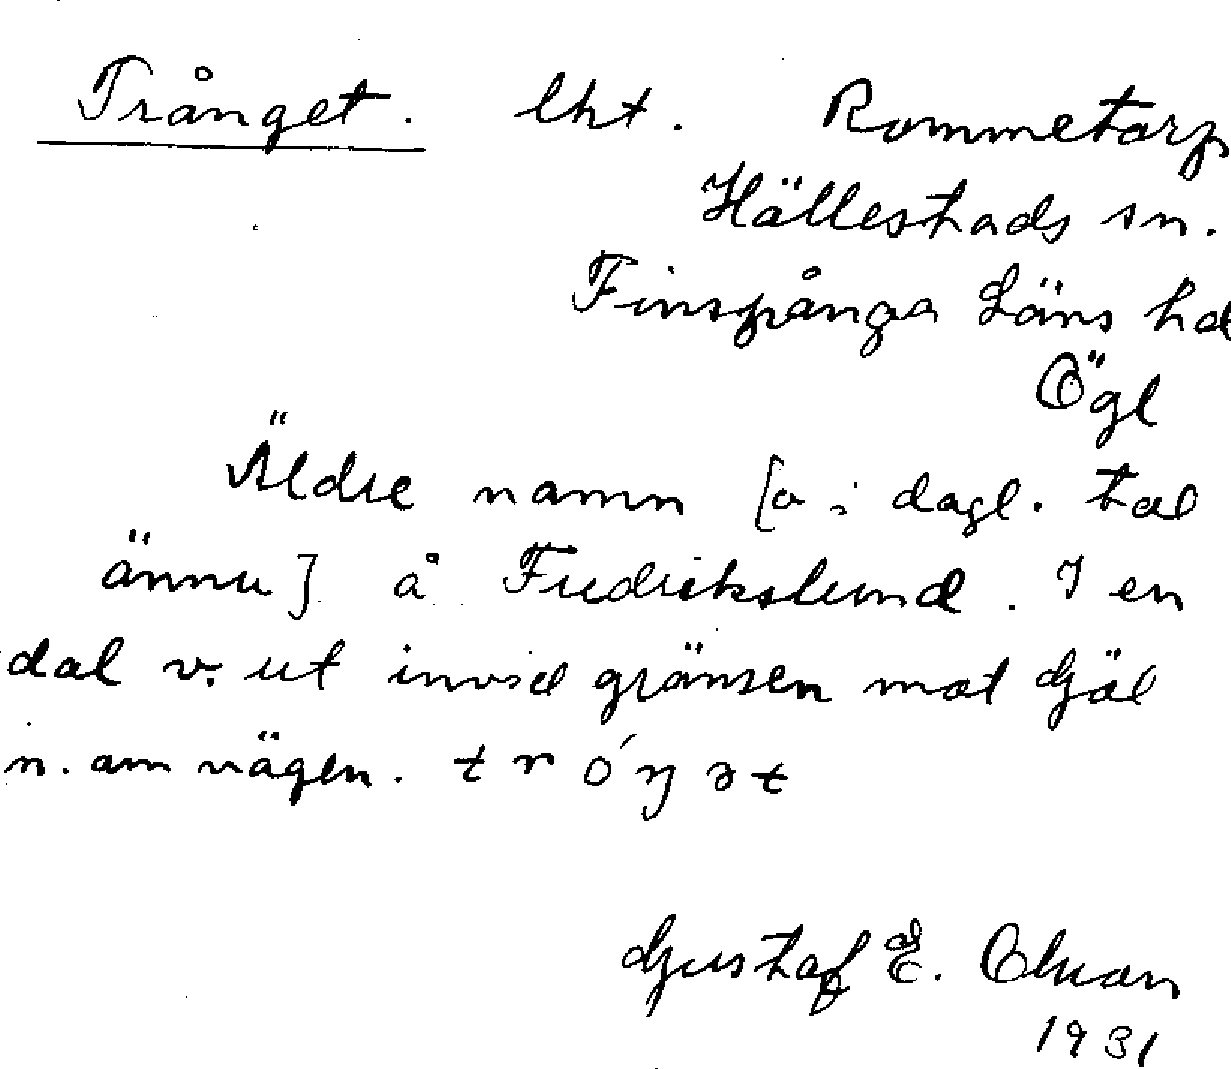 Trånget. lht. Rommetorp
Hällestads sn.
Finspånga Läns hd
Ögl
Äldre namn [o i dagl. tal
ännu] å Fredrikslund. I en
dal v. ut invid gränsen mot Gjäl
n. om vägen. t r ó ŋ ə t
Gustaf E. Olson
1931